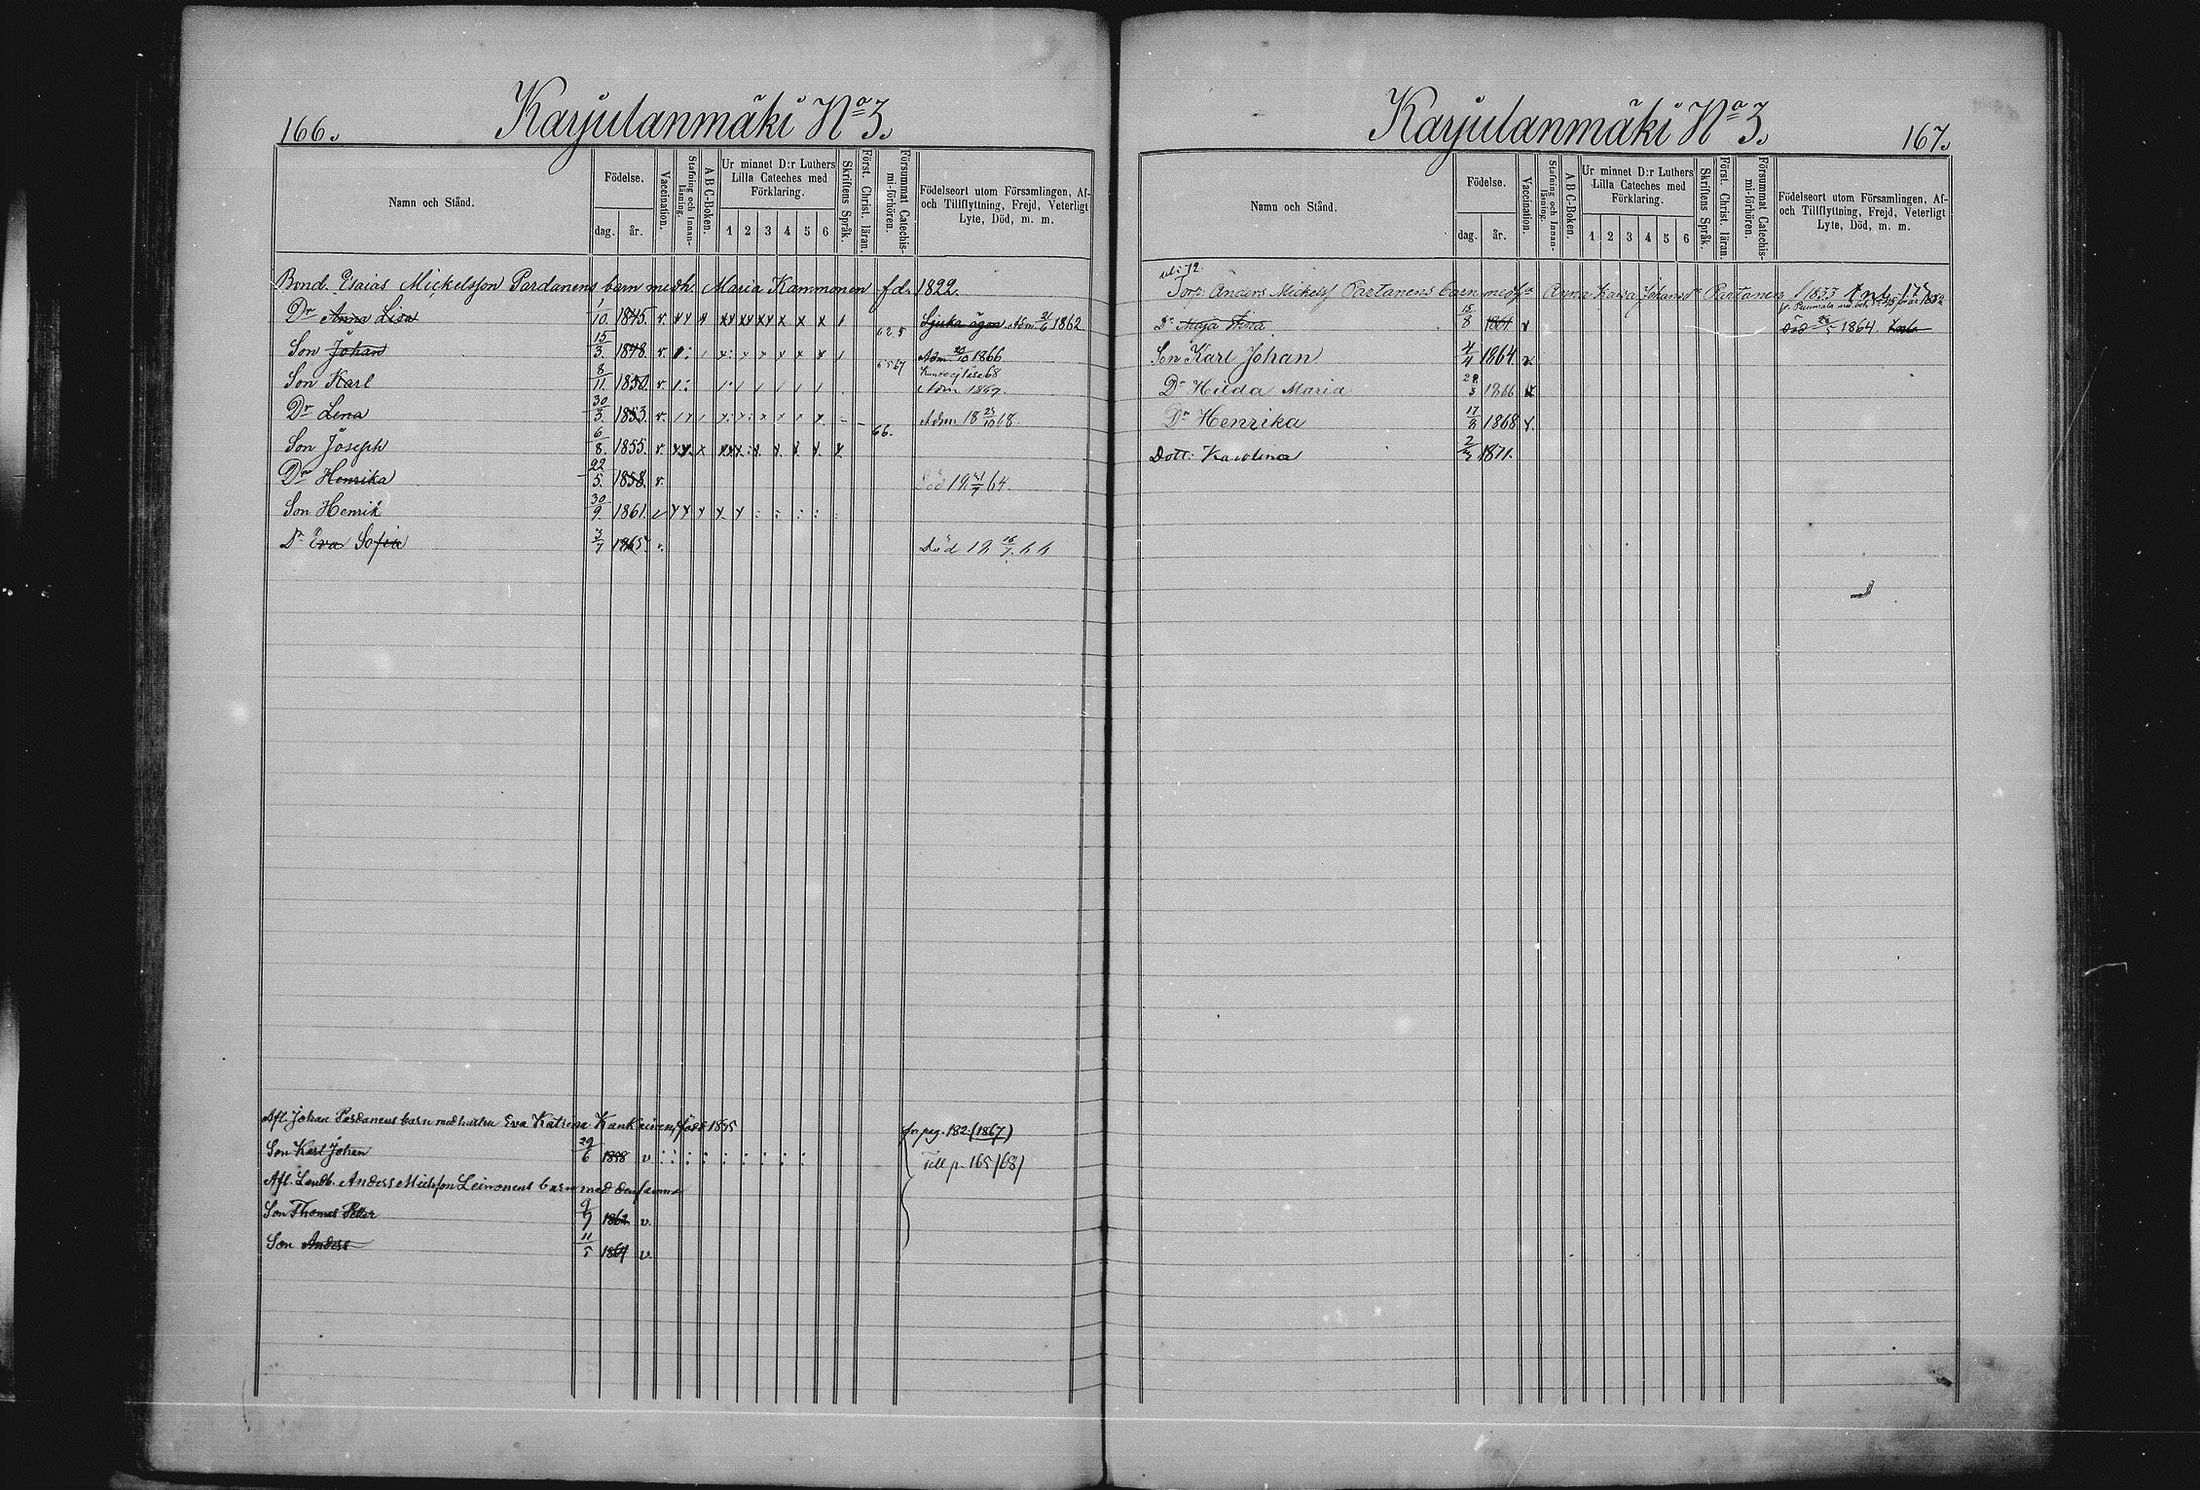 166.
Karjulanmäki No 3.
Namn och Stånd.
Födelse.
dag. år.
Vaccination.
Stafning och Innanläsning.
A B C-Boken.
Ur minnet D:r Luthers Lilla Cateches med Förklaring.
1 2 3 4 5 6
Skriftens Språk.
Först. Christ. läran.
Försummat Catechismi-förhören.
Födelseort utom Församlingen, Af- och Tillflyttning, Frejd, Veterligt Lyte, Död, m. m.
Bond. Esaias Mickelsson Pardanens barn med h. Maria Kammonen f.d. 1822.
Dr Anna Lisa 1/10 1845. v. Sjuka ögon Adm. 21/6 1862
Son Johan 15/3. 1848. v. Adm 20/10 1866.
Son Karl 8/11. 1850. v. Adm 1869.
Dr Lena 30/3. 1853. v. Adm. 18 25/10 68.
Son Joseph 6/8. 1855. v. 66.
Dr Henrika 22/5. 1858. v. Död 18 21/7 64.
Son Henrik 30/9. 1861. v
Dr Eva Sofia 3/7 1865. v. Död 18 16/7. 66
Afl. Johan Pardanens barn med hustru Eva Katrina Kankainen, född 1835
fr pag. 182. (1867)
Son Karl Johan 29/6 1858 v
Till p. 165 (68)
Afl. Landb. Anders Michsson Leinonens barn med densamma
Son Thomas Petter 9/7 1862 v.
Son Anders 11/5 1864 v.
Karjulanmäki No 3.
167.
Namn och Stånd.
Födelse.
dag. år.
Vaccination.
Stafning och Innanläsning.
A.B.C-Boken.
Ur minnet D:r Luthers Lilla Cateches med Förklaring.
1 2 3 4 5 6
Skriftens Språk.
Först. Christ. läran.
Försummat Catechismi-förhören.
Födelseort utom Församlingen, Af- och Tillflyttning, Frejd, Veterligt Lyte, Död, m. m.
Torp. Anders Mickelss Partanens barn med Anna Kaisa Johansdr Partanen f 1833
Dr Maja Stina 15/8 1861. v Död 28/5 1864.
Son Karl Johan 4/4 1864 v
Dr Hilda Maria 29/3 1866
Dr Henrika 17/8 1868 v.
Dott: Karolina 1871.